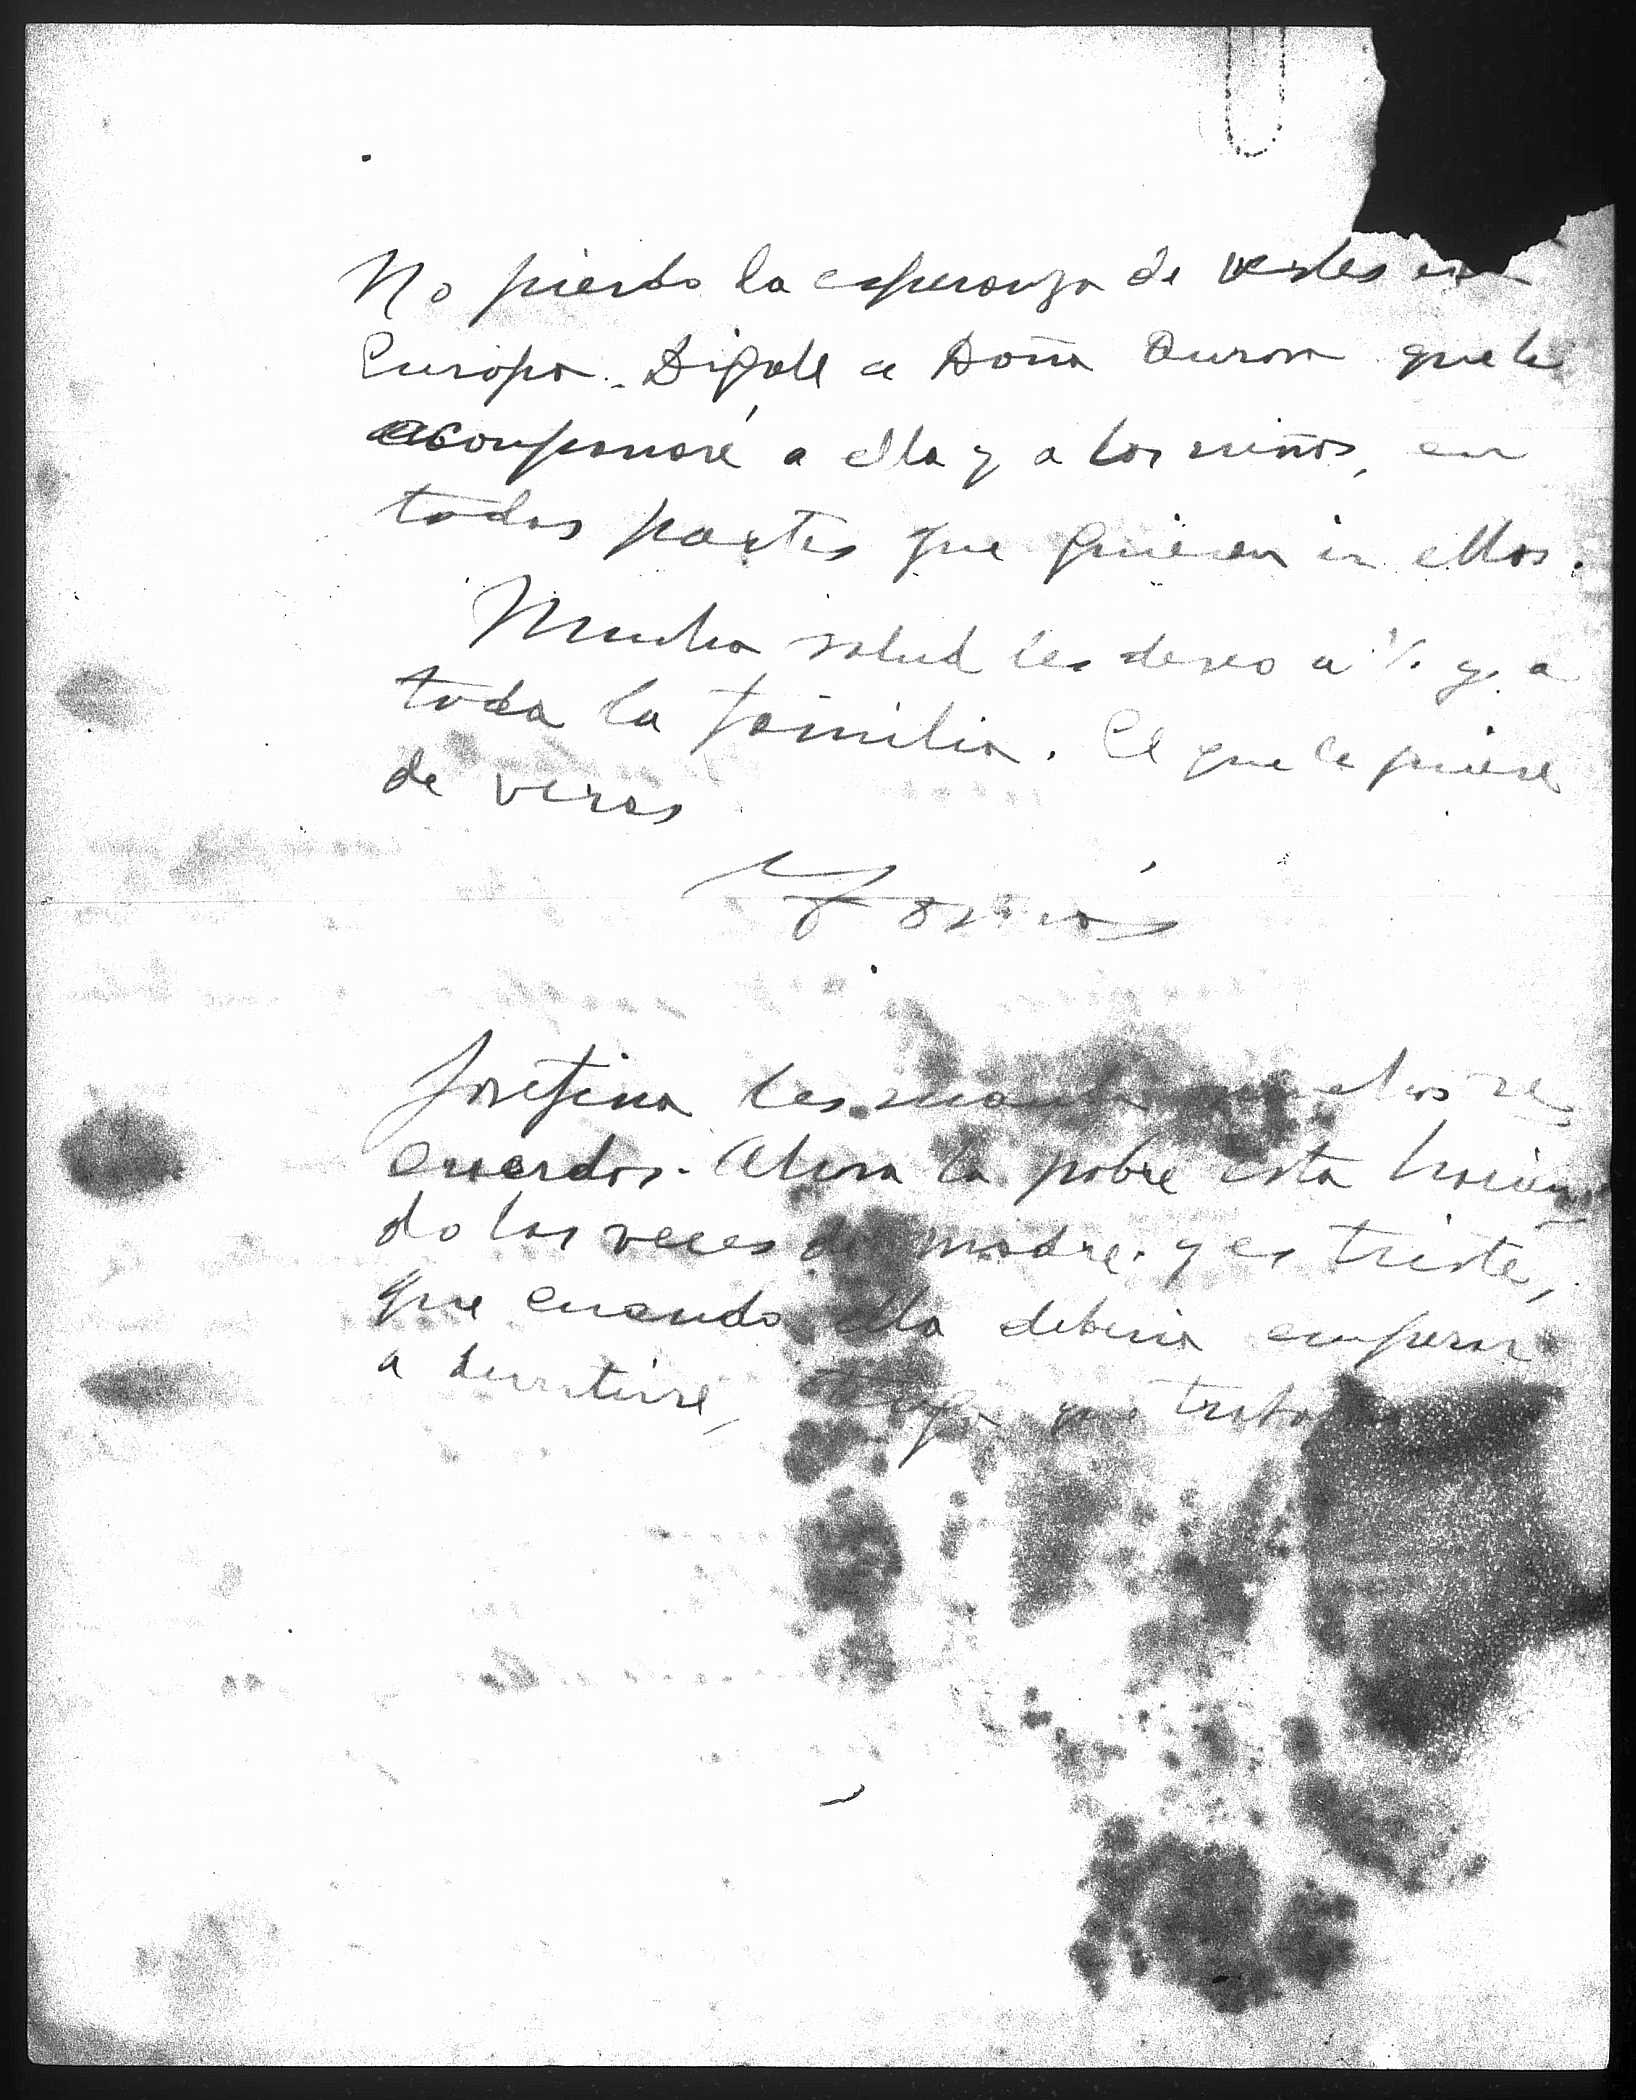 No pierdo la esperanza de verles en
Europa. Digale a Doña Aurora que la
acompañaré a ella y a los niños, en
todas partes que quieran ir ellos.
Mucha salud les deseo a V. y a
toda la familia. El que le quiere
de veras
Josefina les manda muchos re
cuerdos. Ahora la pobre esta hacien
do las veces de madre. y es triste,
que cuando ella deberia empezar
a divertirse, tenga que